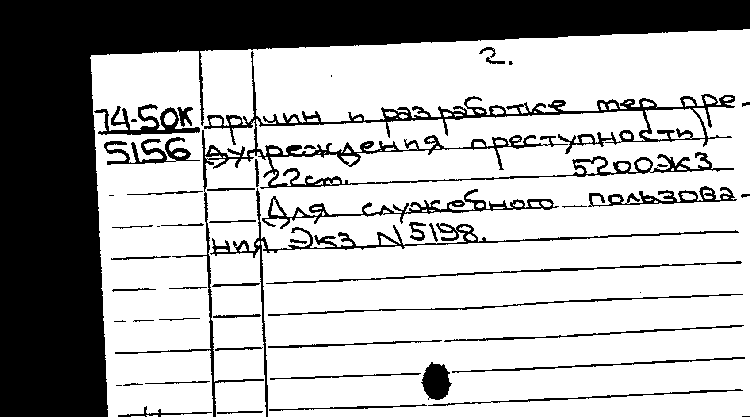 2.
74-50К причин и разработке мер пре-
5156 дупреждения преступность).
22см. 5200экз
Для служебного пользова-
ния. Экз N5198.